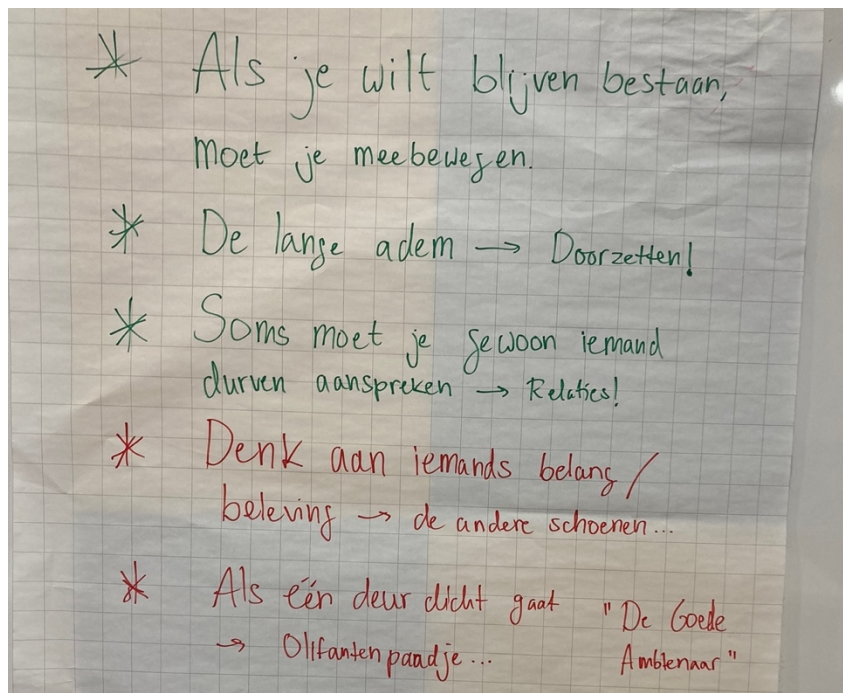 * Als je wilt blijven bestaan,
moet je meebewegen.
* De lange adem → Doorzetten!
* Soms moet je gewoon iemand
durven aanspreken → Relaties!
* Denk aan iemands belang/
beleving → de andere schoenen...
* Als één deur dicht gaat
→ Olifantenpaadje...
"De Goede
Ambtenaar"